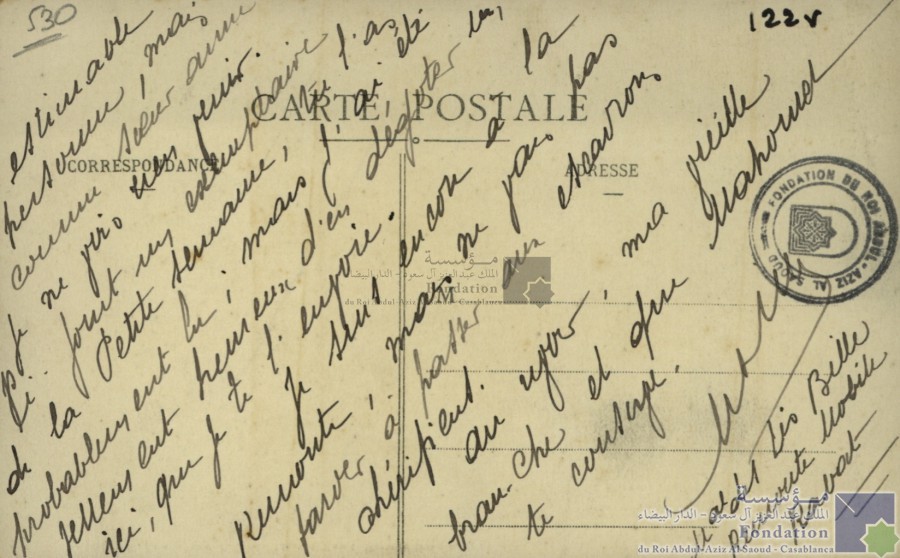 530
122v
CARTE POSTALE
CORRESPONDANCE
ADRESSE
estimable
personne, mais
comme sœur aime
je ne vois rien venir.
Ci-joint un exemplaire
de la Petite semaine, tu l'as
probablement lu, mais j'ai été
tellement heureux d'en dégoter un,
ici, que je te l'envoie.
Je suis encore à la
remonte, mais ne vais pas
tarder à passer aux escadrons
chérifiens.
Au revoir, ma vieille
branche et que Mahomet
te protège.
Bille
remonte Mobile
Rabat
FONDATION DU ROI ABDUL-AZIZ AL SAOUD
مؤسسة
الملك عبد العزيز آل سعود - الدار البيضاء
Fondation
du Roi Abdul-Aziz Al-Saoud - Casablanca
مؤسسة
الملك عبد العزيز آل سعود - الدار البيضاء
Fondation
du Roi Abdul-Aziz Al-Saoud - Casablanca